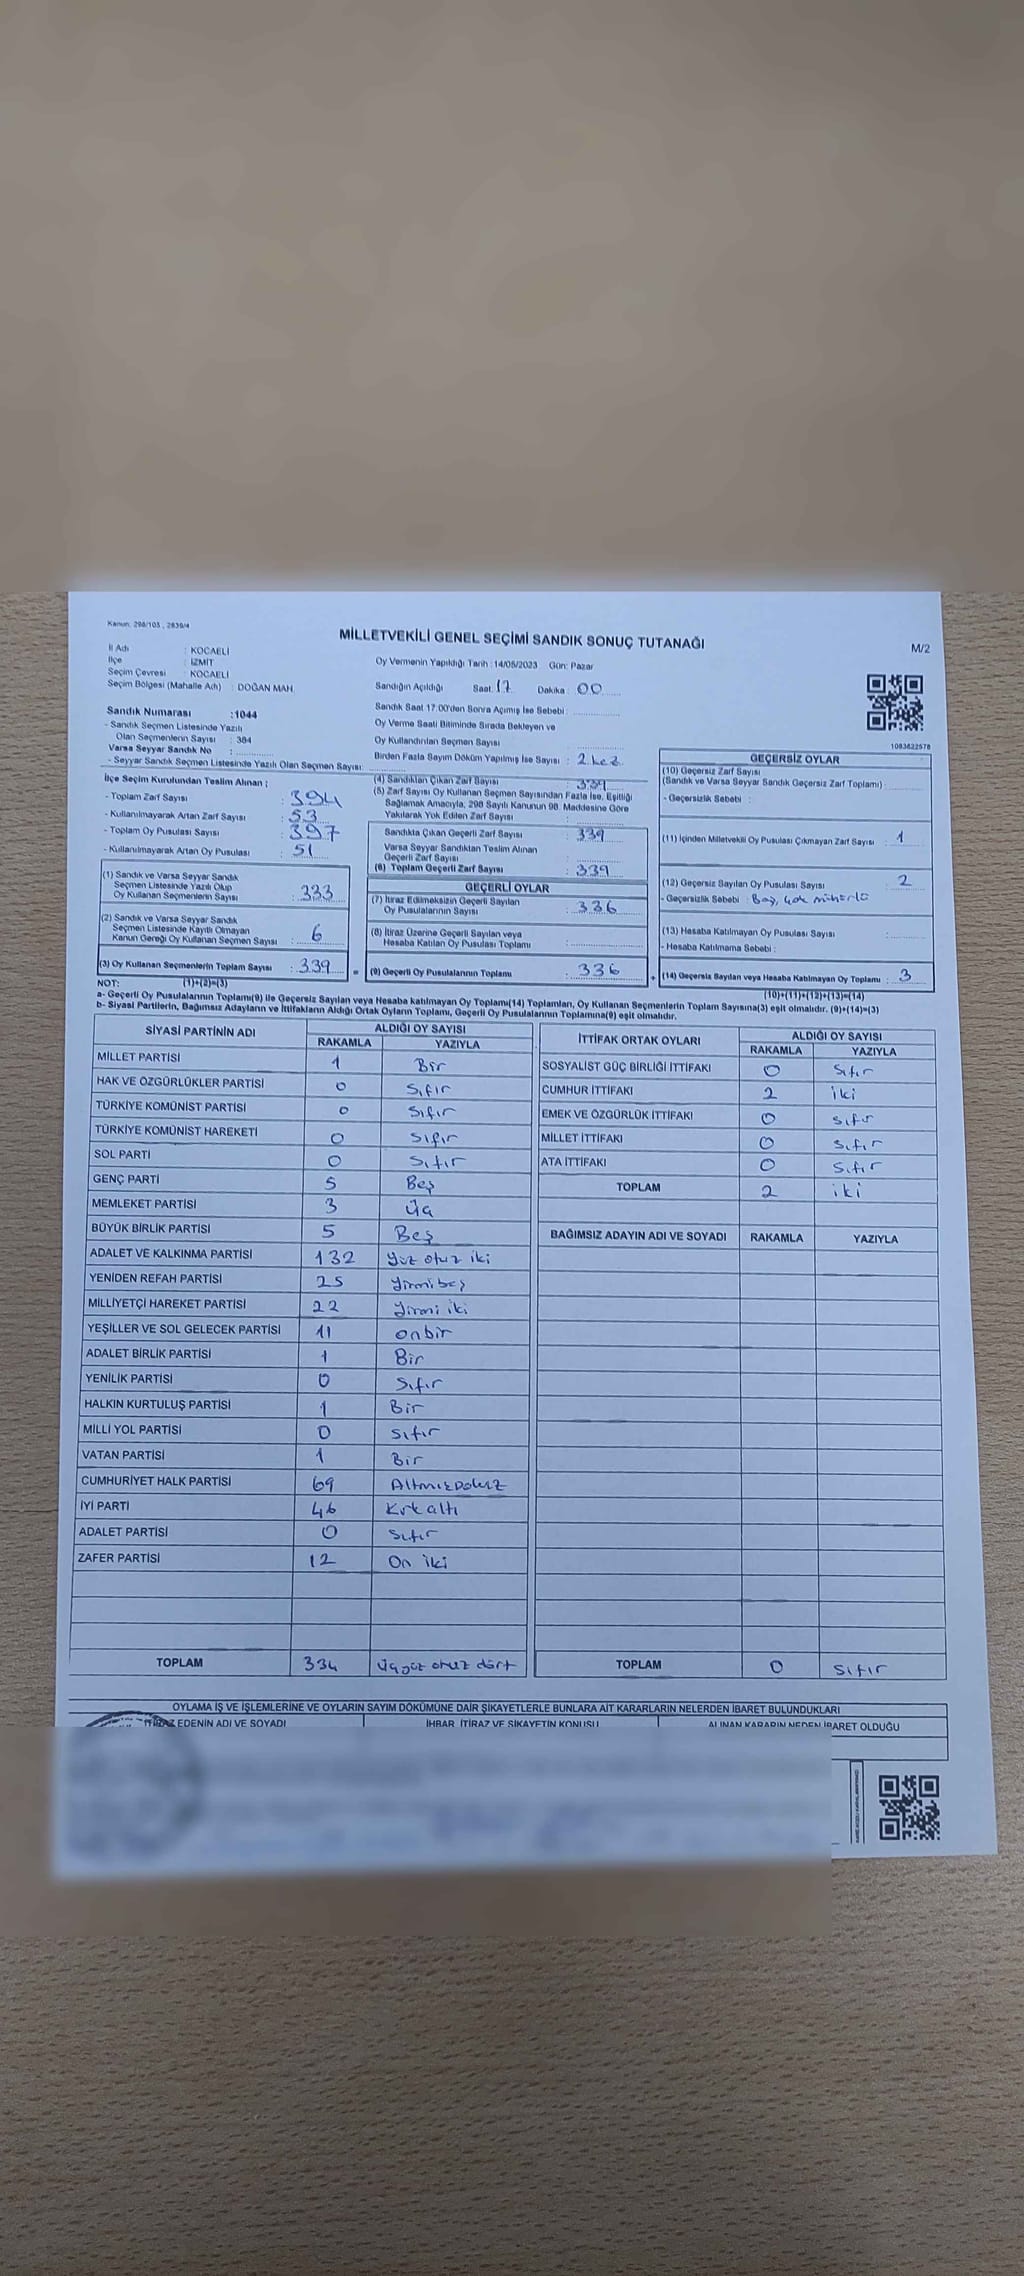 Kanun: 298/103 , 2839/4
MİLLETVEKİLİ GENEL SEÇİMİ SANDIK SONUÇ TUTANAĞI
M/2
İl Adı : KOCAELİ
İlçe : İZMİT
Seçim Çevresi : KOCAELİ
Seçim Bölgesi (Mahalle Adı) : DOĞAN MAH.
Oy Vermenin Yapıldığı Tarih : 14/05/2023 Gün: Pazar
Sandığın Açıldığı Saat: 17 Dakika : 00
Sandık Saat 17.00'den Sonra Açılmış İse Sebebi :
Oy Verme Saati Bitiminde Sırada Bekleyen ve
Oy Kullandırılan Seçmen Sayısı :
Birden Fazla Sayım Döküm Yapılmış İse Sayısı : 2 kez
1083622578
Sandık Numarası :1044
- Sandık Seçmen Listesinde Yazılı
Olan Seçmenlerin Sayısı : 384
Varsa Seyyar Sandık No :
- Seyyar Sandık Seçmen Listesinde Yazılı Olan Seçmen Sayısı:
İlçe Seçim Kurulundan Teslim Alınan ;
- Toplam Zarf Sayısı : 394
- Kullanılmayarak Artan Zarf Sayısı : 53
- Toplam Oy Pusulası Sayısı : 397
- Kullanılmayarak Artan Oy Pusulası : 51
(1) Sandık ve Varsa Seyyar Sandık
Seçmen Listesinde Yazılı Olup
Oy Kullanan Seçmenlerin Sayısı : 333
(2) Sandık ve Varsa Seyyar Sandık
Seçmen Listesinde Kayıtlı Olmayan
Kanun Gereği Oy Kullanan Seçmen Sayısı : 6
(3) Oy Kullanan Seçmenlerin Toplam Sayısı : 339
(4) Sandıktan Çıkan Zarf Sayısı : 339
(5) Zarf Sayısı Oy Kullanan Seçmen Sayısından Fazla İse, Eşitliği
Sağlamak Amacıyla, 298 Sayılı Kanunun 98. Maddesine Göre
Yakılarak Yok Edilen Zarf Sayısı :
Sandıkta Çıkan Geçerli Zarf Sayısı : 339
Varsa Seyyar Sandıktan Teslim Alınan
Geçerli Zarf Sayısı :
(6) Toplam Geçerli Zarf Sayısı : 339
GEÇERLİ OYLAR
(7) İtiraz Edilmeksizin Geçerli Sayılan
Oy Pusulalarının Sayısı : 336
(8) İtiraz Üzerine Geçerli Sayılan veya
Hesaba Katılan Oy Pusulası Toplamı :
= (9) Geçerli Oy Pusulalarının Toplamı : 336
GEÇERSİZ OYLAR
(10) Geçersiz Zarf Sayısı
(Sandık ve Varsa Seyyar Sandık Geçersiz Zarf Toplamı) :
- Geçersizlik Sebebi :
(11) İçinden Milletvekili Oy Pusulası Çıkmayan Zarf Sayısı : 1
(12) Geçersiz Sayılan Oy Pusulası Sayısı : 2
- Geçersizlik Sebebi : Boş, çok mühürlü
(13) Hesaba Katılmayan Oy Pusulası Sayısı :
- Hesaba Katılmama Sebebi :
+ (14) Geçersiz Sayılan veya Hesaba Katılmayan Oy Toplamı : 3
NOT: (1)+(2)=(3)
(10)+(11)+(12)+(13)=(14)
a- Geçerli Oy Pusulalarının Toplamı(9) ile Geçersiz Sayılan veya Hesaba katılmayan Oy Toplamı(14) Toplamları, Oy Kullanan Seçmenlerin Toplam Sayısına(3) eşit olmalıdır. (9)+(14)=(3)
b- Siyasi Partilerin, Bağımsız Adayların ve İttifakların Aldığı Ortak Oyların Toplamı, Geçerli Oy Pusulalarının Toplamına(9) eşit olmalıdır.
SİYASİ PARTİNİN ADI ALDIĞI OY SAYISI
RAKAMLA YAZIYLA
MİLLET PARTİSİ 1 Bir
HAK VE ÖZGÜRLÜKLER PARTİSİ 0 Sıfır
TÜRKİYE KOMÜNİST PARTİSİ 0 Sıfır
TÜRKİYE KOMÜNİST HAREKETİ 0 Sıfır
SOL PARTİ 0 Sıfır
GENÇ PARTİ 5 Beş
MEMLEKET PARTİSİ 3 Üç
BÜYÜK BİRLİK PARTİSİ 5 Beş
ADALET VE KALKINMA PARTİSİ 132 Yüz otuz iki
YENİDEN REFAH PARTİSİ 25 Yirmibeş
MİLLİYETÇİ HAREKET PARTİSİ 22 Yirmi iki
YEŞİLLER VE SOL GELECEK PARTİSİ 11 onbir
ADALET BİRLİK PARTİSİ 1 Bir
YENİLİK PARTİSİ 0 Sıfır
HALKIN KURTULUŞ PARTİSİ 1 Bir
MİLLİ YOL PARTİSİ 0 sıfır
VATAN PARTİSİ 1 Bir
CUMHURİYET HALK PARTİSİ 69 Altmışdokuz
İYİ PARTİ 46 Kırkaltı
ADALET PARTİSİ 0 Sıfır
ZAFER PARTİSİ 12 On iki
TOPLAM 334 Üçyüz otuz dört
İTTİFAK ORTAK OYLARI ALDIĞI OY SAYISI
RAKAMLA YAZIYLA
SOSYALİST GÜÇ BİRLİĞİ İTTİFAKI 0 Sıfır
CUMHUR İTTİFAKI 2 iki
EMEK VE ÖZGÜRLÜK İTTİFAKI 0 sıfır
MİLLET İTTİFAKI 0 sıfır
ATA İTTİFAKI 0 Sıfır
TOPLAM 2 iki
BAĞIMSIZ ADAYIN ADI VE SOYADI RAKAMLA YAZIYLA
TOPLAM 0 Sıfır
OYLAMA İŞ VE İŞLEMLERİNE VE OYLARIN SAYIM DÖKÜMÜNE DAİR ŞİKAYETLERLE BUNLARA AİT KARARLARIN NELERDEN İBARET BULUNDUKLARI
İTİRAZ EDENİN ADI VE SOYADI İHBAR, İTİRAZ VE ŞİKAYETİN KONUSU ALINAN KARARIN NEDEN İBARET OLDUĞU